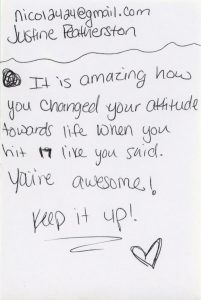 nicol2424@gmail.com
Justine Featherston
It is amazing how
you changed your attitude
towards life when you
hit 17 like you said.
You're awesome!
Keep it up!